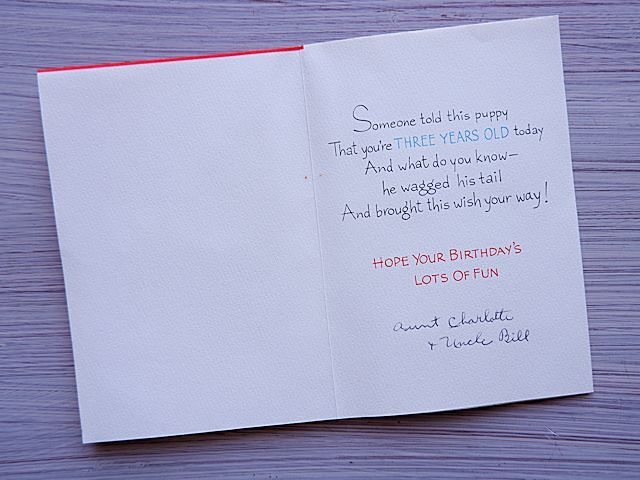 Someone told this puppy
That you're THREE YEARS OLD today
And what do you know—
he wagged his tail
And brought this wish your way!
HOPE YOUR BIRTHDAY'S
LOTS OF FUN
Aunt Charlotte
+ Uncle Bill